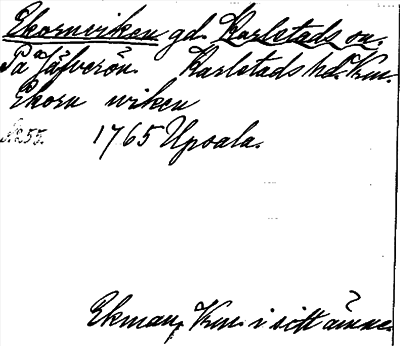 Ekornviken gd. Karlstads sn.
På Jäfverön. Karlstads hd. Krm.
Ekorn wiken
S. 255. 1765 Upsala.
Ekman, Krm. i sitt ämne.